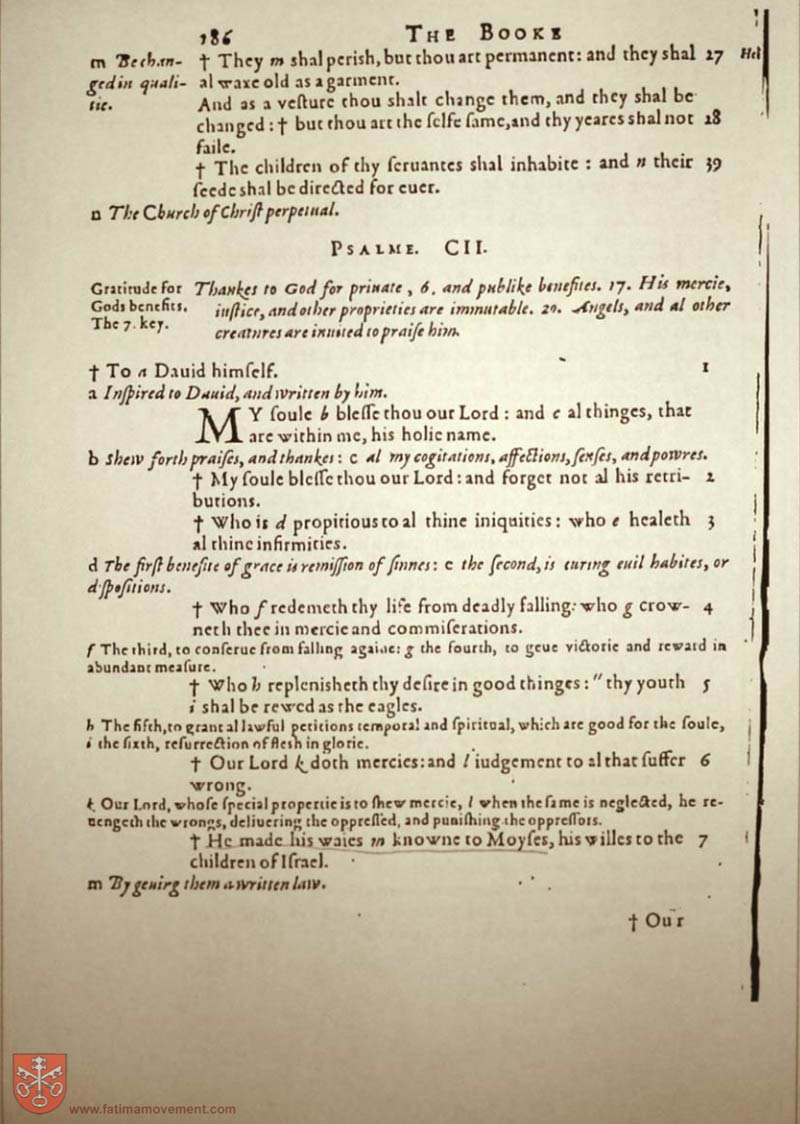 186 THE BOOKE
m Be chan- † They m shal perish, but thou art permanent: and they shal 27 Heb
ged in quali- al waxe old as a garment.
tie. And as a vesture thou shalt change them, and they shal be
changed: † but thou art the selfe same, and thy yeares shal not 28
faile.
† The children of thy seruantes shal inhabite : and n their 39
seede shal be directed for euer.
n The Church of Christ perpetual.
PSALME. CII.
Gratitude for Thankes to God for priuate, 6. and publike benefites. 17. His mercie,
Gods benefits. iustice, and other proprieties are immutable. 20. Angels, and al other
The 7. key. creatures are inuited to praise him.
† To a Dauid himself. 1
a Inspired to Dauid, and written by him.
MY soule b blesse thou our Lord : and c al thinges, that
are within me, his holie name.
b Shew forth praises, and thankes: c al my cogitations, affections, senses, and powres.
† My soule blesse thou our Lord: and forget not al his retri- 2
butions.
† Who is d propitious to al thine iniquities: who e healeth 3
al thine infirmities.
d The first benefite of grace is remission of sinnes: e the second, is curing euil habites, or
dispositions.
† Who f redemeth thy life from deadly falling: who g crow- 4
neth thee in mercie and commiserations.
f The third, to conserue from falling againe: g the fourth, to geue victorie and reward in
abundant measure.
† Who h replenisheth thy desire in good thinges: " thy youth 5
i shal be rewed as the eagles.
h The fifth, to grant al lawful petitions temporal and spiritual, which are good for the soule,
i the sixth, resurrection of flesh in glorie.
† Our Lord k doth mercies: and l iudgement to al that suffer 6
wrong.
k Our Lord, whose special propertie is to shew mercie, l when the same is neglected, he re-
uengeth the wrongs, deliuering the oppressed, and punishing the oppressors.
† He made his waies m knowne to Moyses, his willes to the 7
children of Israel.
m By geuirg them a written law.
† Our
www.fatimamovement.com